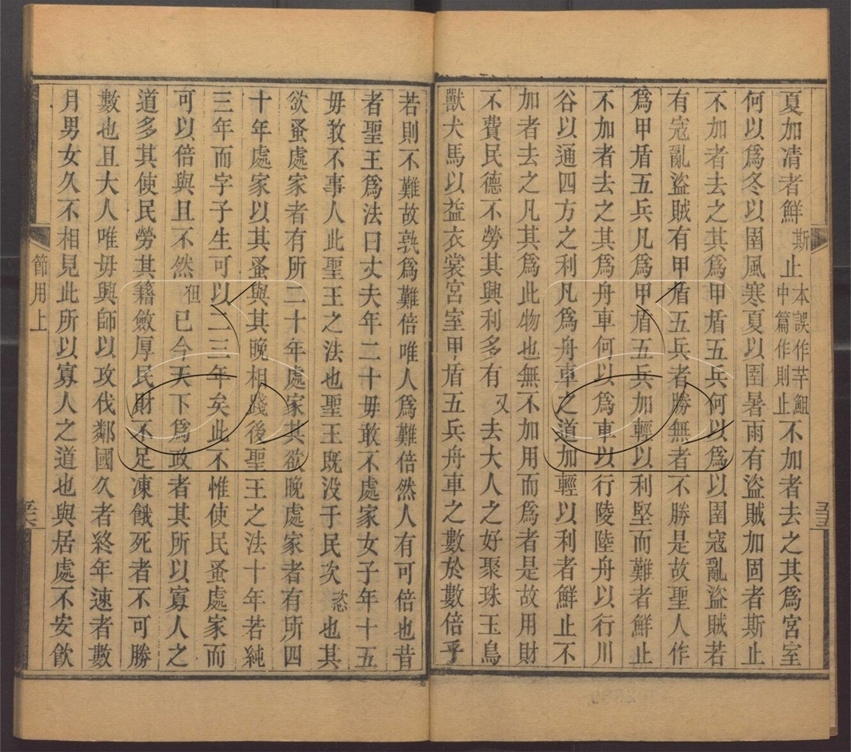 夏加凊者鮮斯止本誤作芋䱉中篇作則止不加者去之其爲宮室
何以爲冬以圉風寒夏以圉暑雨有盜賊加固者斯止
不加者去之其爲甲盾五兵何以爲以圉寇亂盜賊若
有寇亂盜賊有甲盾五兵者勝無者不勝是故聖人作
爲甲盾五兵凡爲甲盾五兵加輕以利堅而難者鮮止
不加者去之其爲舟車何以爲車以行陵陸舟以行川
谷以通四方之利凡爲舟車之道加輕以利者鮮止不
加者去之凡其爲此物也無不加用而爲者是故用財
不費民德不勞其興利多有又去大人之好聚珠玉鳥
獸犬馬以益衣裳宮室甲盾五兵舟車之數於數倍乎
若則不難故孰爲難倍唯人爲難倍然人有可倍也昔
者聖王爲法曰丈夫年二十毋敢不處家女子年十五
毋敢不事人此聖王之法也聖王旣没于民次恣也其
欲蚤處家者有所二十年處家其欲晚處家者有所四
十年處家以其蚤與其晚相踐後聖王之法十年若純
三年而字子生可以二三年矣此不惟使民蚤處家而
可以倍與且不然徂已今天下爲政者其所以寡人之
道多其使民勞其籍斂厚民財不足凍餓死者不可勝
數也且大人唯毋興師以攻伐鄰國久者終年速者數
月男女久不相見此所以寡人之道也與居處不安飮
節用上